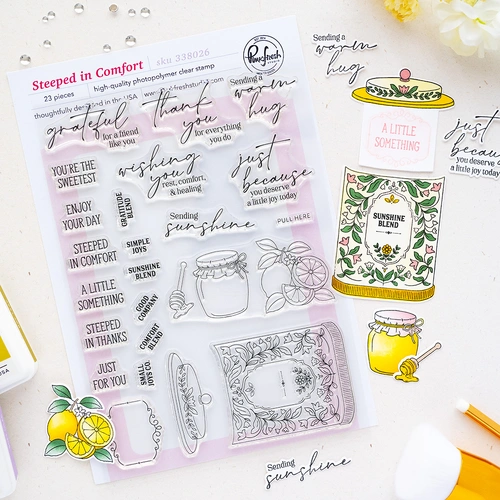 Steeped in Comfort
sku 338026
Pinkfresh
STUDIO
23 pieces
high-quality photopolymer clear stamp
thoughtfully designed in the USA
grateful
for a friend
like you
thank
you
for everything
you do
Sending a
warm
hug
YOU'RE THE
SWEETEST
wishing
you
rest, comfort,
& healing
just
because
you deserve
a little joy today
ENJOY
YOUR DAY
GRATITUDE
BLEND
Sending
sunshine
PULL HERE
STEEPED
IN COMFORT
SIMPLE
JOYS
SUNSHINE
BLEND
A LITTLE
SOMETHING
GOOD
COMPANY
STEEPED
IN THANKS
COMFORT
BLEND
JUST
FOR YOU
SMALL
JOYS CO.
Sending a
warm
hug
A LITTLE
SOMETHING
just
because
you deserve
a little joy today
SUNSHINE
BLEND
Sending
sunshine
USA